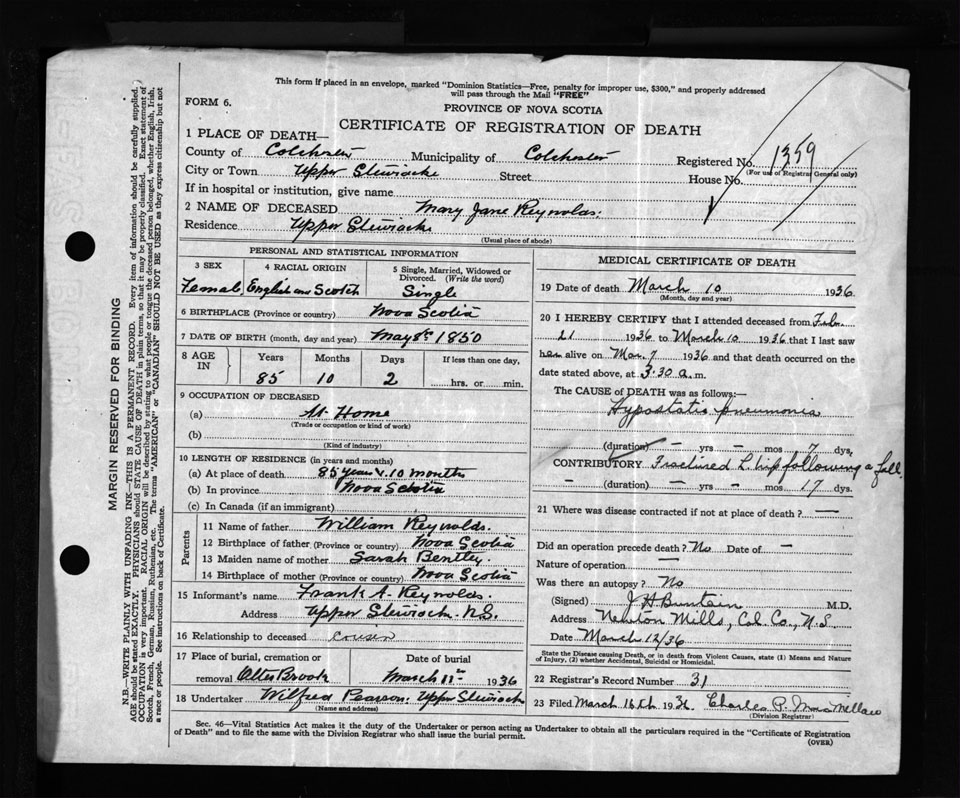 This form if placed in an envelope, marked "Dominion Statistics—Free, penalty for improper use, $300," and properly addressed
will pass through the Mail "FREE"
FORM 6.
PROVINCE OF NOVA SCOTIA
CERTIFICATE OF REGISTRATION OF DEATH
1 PLACE OF DEATH—
County of Colchester Municipality of Colchester Registered No. 1359
(For use of Registrar General only)
City or Town Upper Stewiacke Street House No.
If in hospital or institution, give name
2 NAME OF DECEASED Mary Jane Reynolds.
Residence Upper Stewiacke
(Usual place of abode)
PERSONAL AND STATISTICAL INFORMATION
3 SEX 4 RACIAL ORIGIN 5 Single, Married, Widowed or
Divorced. (Write the word)
Female English and Scotch Single
6 BIRTHPLACE (Province or country) Nova Scotia
7 DATE OF BIRTH (month, day and year) May 8th 1850
8 AGE IN Years Months Days If less than one day,
85 10 2 hrs. or min.
9 OCCUPATION OF DECEASED
(a) At Home
(Trade or occupation or kind of work)
(b)
(Kind of industry)
10 LENGTH OF RESIDENCE (in years and months)
(a) At place of death 85 years & 10 months
(b) In province Nova Scotia
(c) In Canada (if an immigrant)
Parents
11 Name of father William Reynolds.
12 Birthplace of father (Province or country) Nova Scotia
13 Maiden name of mother Sarah Bentley
14 Birthplace of mother (Province or country) Nova Scotia
15 Informant's name Frank A. Reynolds.
Address Upper Stewiacke N.S.
16 Relationship to deceased cousen
17 Place of burial, cremation or Date of burial
removal Otter Brook March 11th 1936
18 Undertaker Wilfred Pearson, Upper Stewiacke
(Name and address)
MEDICAL CERTIFICATE OF DEATH
19 Date of death March 10 1936
(Month, day and year)
20 I HEREBY CERTIFY that I attended deceased from Feb
21 1936 to March 10 1936 that I last saw
her alive on Mar. 7 1936 and that death occurred on the
date stated above, at 3.30 a.m.
The CAUSE OF DEATH was as follows:—
Hypostatic pneumonia
(duration) — yrs — mos 7 dys.
CONTRIBUTORY Fractured L. hip following a fall.
— (duration) — yrs — mos 17 dys.
21 Where was disease contracted if not at place of death? —
Did an operation precede death? No Date of —
Nature of operation —
Was there an autopsy? No
(Signed) J H Buntain M.D.
Address Newton Mills, Col. Co., N.S.
Date March 12/36
State the Disease causing Death, or in death from Violent Causes, state (1) Means and
Nature of Injury, (2) whether Accidental, Suicidal or Homicidal.
22 Registrar's Record Number 31
23 Filed March 16th. 1936 Charles P.
(Division Registrar)
Sec. 46—Vital Statistics Act makes it the duty of the Undertaker or person acting as Undertaker to obtain all the particulars required in the "Certificate of Registration
of Death" and to file the same with the Division Registrar who shall issue the burial permit.
(OVER)
MARGIN RESERVED FOR BINDING
N.B.—WRITE PLAINLY WITH UNFADING INK—THIS IS A PERMANENT RECORD. Every item of information should be carefully supplied.
AGE should be stated EXACTLY. PHYSICIANS should STATE CAUSE OF DEATH in plain terms, so that it may be properly classified. Exact statement of
OCCUPATION is very important. RACIAL ORIGIN will be described by stating to what people or tongue the deceased person belonged, whether English, Irish,
Scotch, French, German, Russian, Ruthenian, etc. The terms "AMERICAN" or "CANADIAN" SHOULD NOT BE USED as they express citizenship but not
a race or people. See instructions on back of Certificate.